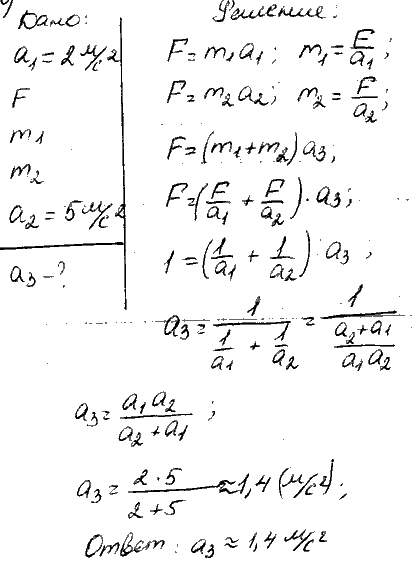 Дано:
a₁ = 2 м/с²
F
m₁
m₂
a₂ = 5 м/с²
a₃ - ?
Решение:
F = m₁a₁; m₁ = F/a₁;
F = m₂a₂; m₂ = F/a₂;
F = (m₁+m₂)a₃;
F = (F/a₁ + F/a₂) · a₃;
1 = (1/a₁ + 1/a₂) · a₃;
a₃ = 1/(1/a₁ + 1/a₂) = 1/((a₂+a₁)/(a₁a₂))
a₃ = a₁a₂/(a₂+a₁);
a₃ = (2·5)/(2+5) ≈ 1,4 (м/с²);
Ответ: a₃ ≈ 1,4 м/с²